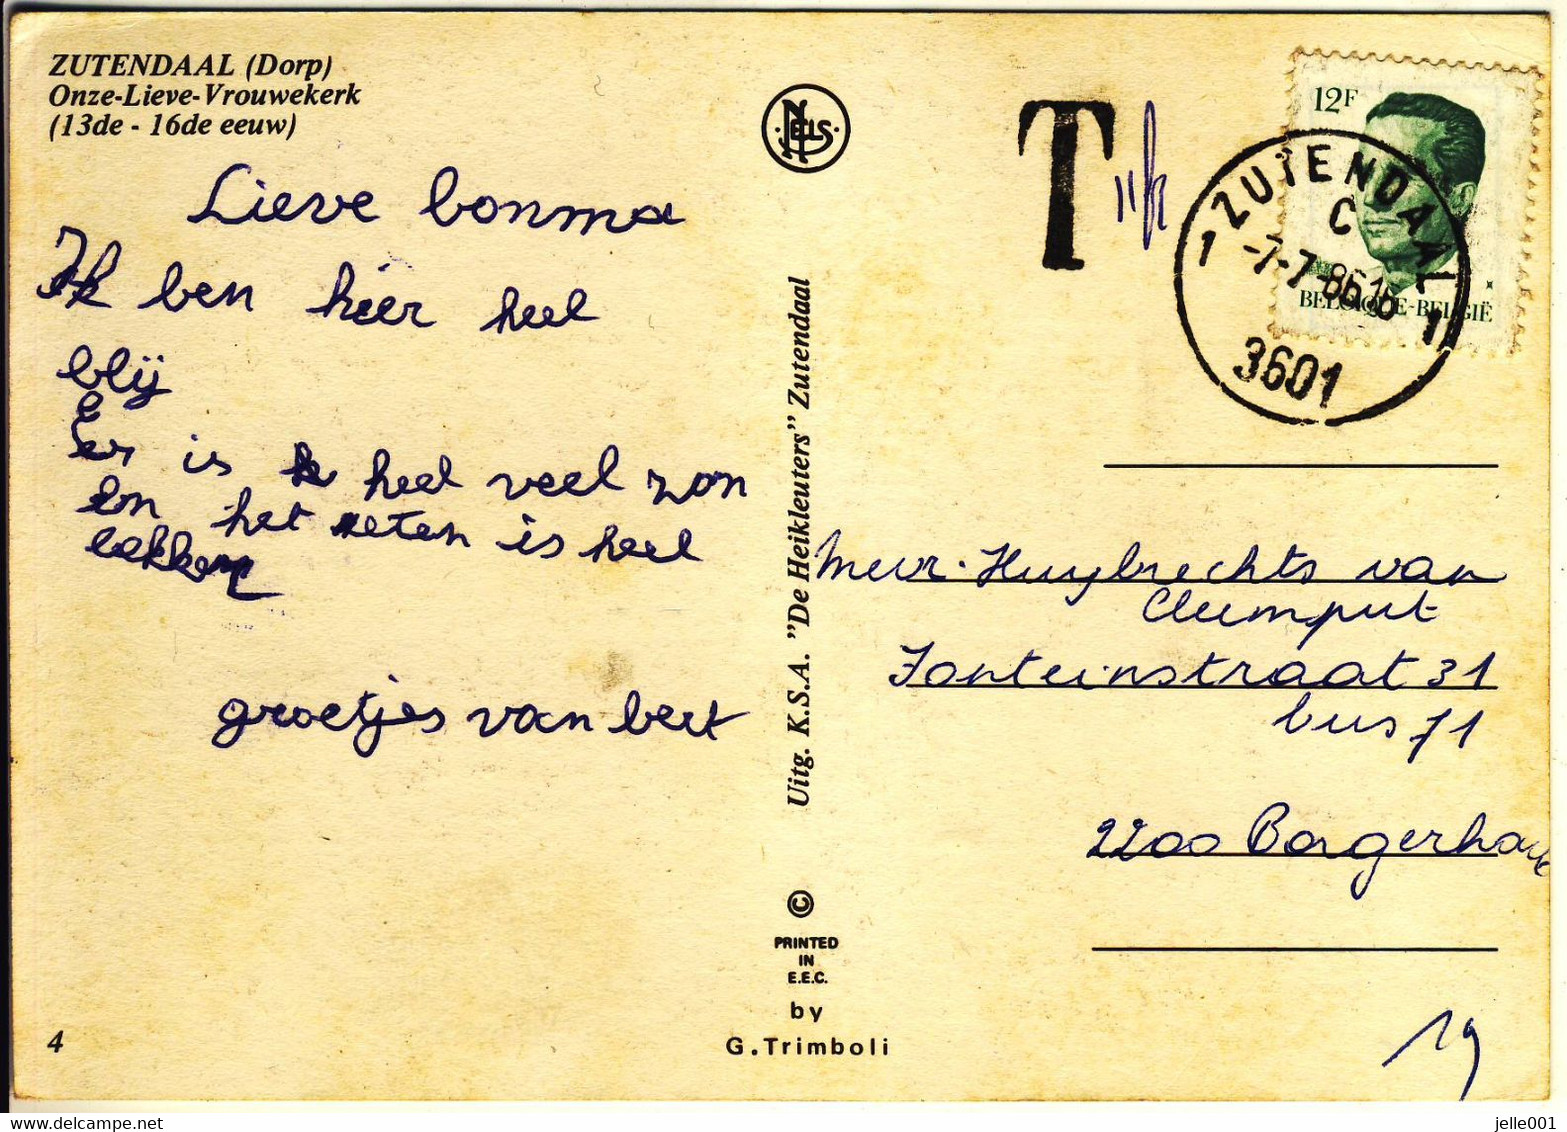 ZUTENDAAL (Dorp)
Onze-Lieve-Vrouwekerk
(13de - 16de eeuw)
Lieve bonma
Ik ben hier heel
blij
Er is heel veel zon
en het eten is heel
lekker
groetjes van bert
4
NELS
Uitg. K.S.A. "De Heikleuters" Zutendaal
©
PRINTED
IN
E.E.C.
by
G.Trimboli
T
12F
BELGIQUE-BELGIË
ZUTENDAAL
C
1 -7-7-86 16 1
3601
Mevr. Huybrechts van
Clemput
Fonteinstraat 31
bus 71
2200 Borgerhout
19
jelle001